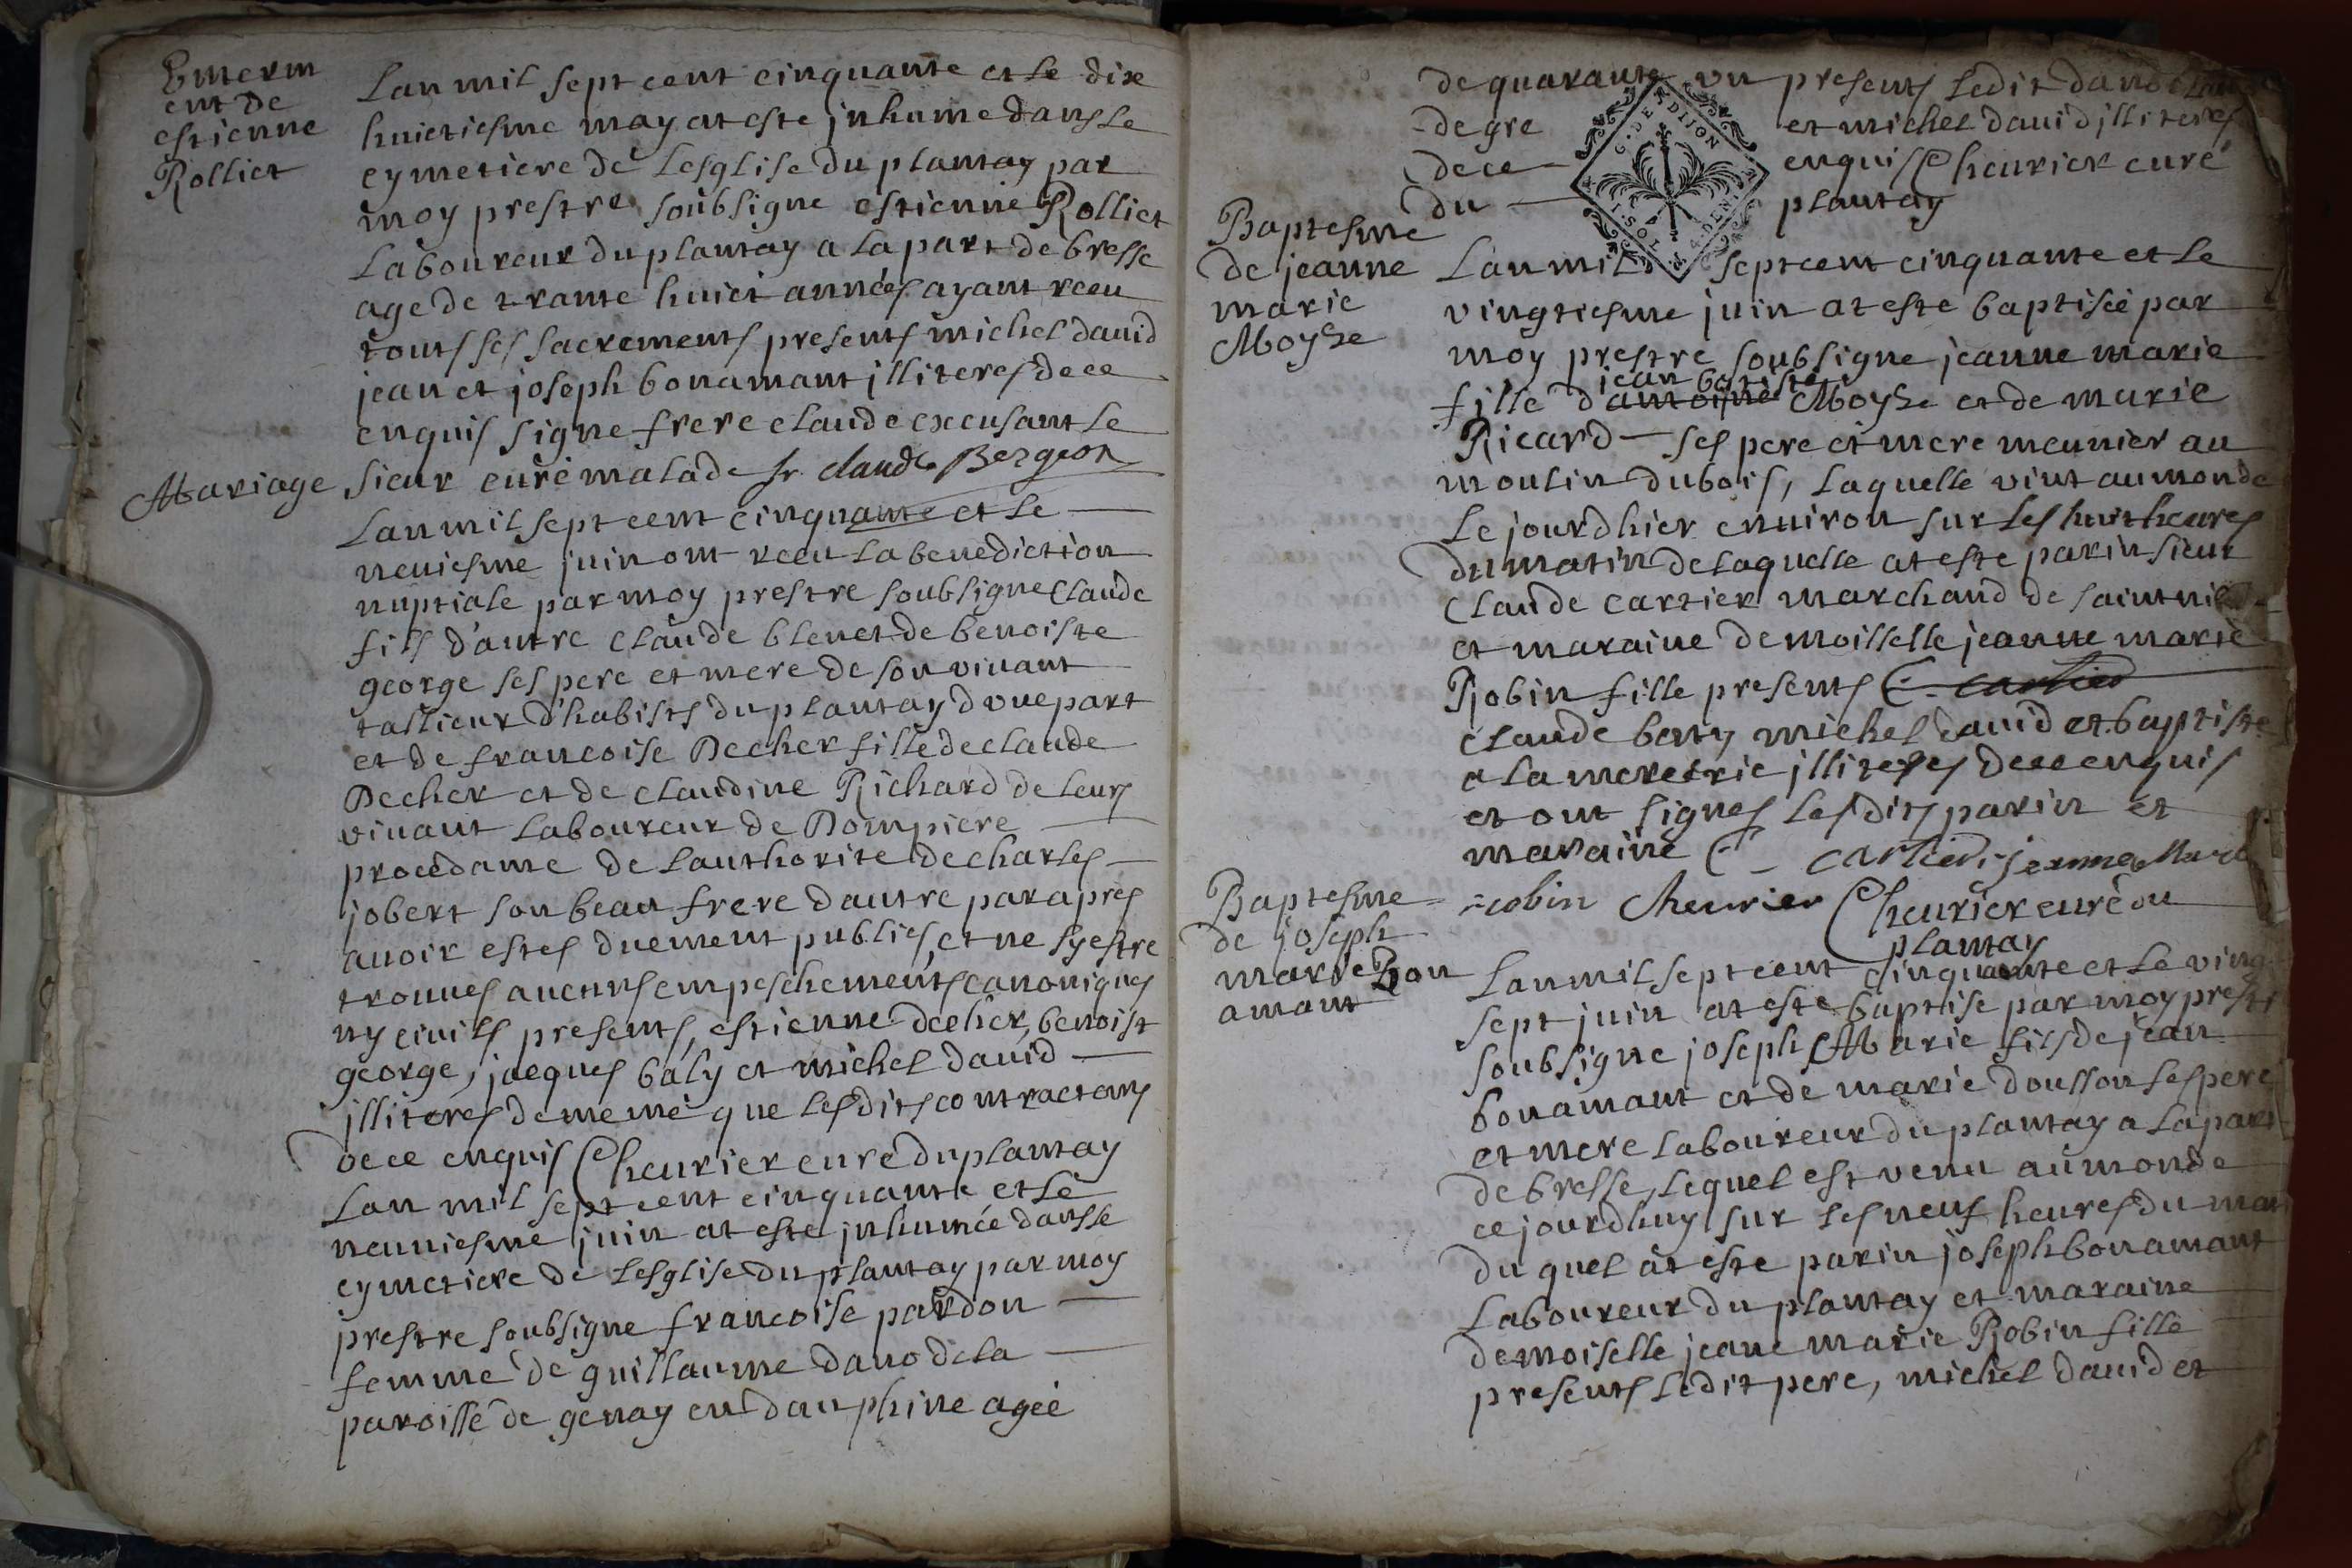 Enterm
ent de
estienne
Rolliet
Lan mil sept cent cinquante et le dix
huictiesme may at este jnhume dans le
cymetiere de Lesglise du plantay par
moy prestre soubsigne estienne Rolliet
Laboureur du plantay a la part de bresse
age de trante huict années ayant receu
touts ses sacrements presents michel david
jean et joseph bonamant jlliteres de ce
enquis signe frere claude excusant le
sieur curé malade fr claude Bergeon
Mariage
Lan mil sept cent cinquante et le
neuiesme juin ont receu la benediction
nuptiale par moy prestre soubsigne Claude
fils d'autre claude blenet de benoiste
george ses pere et mere de son viuant
tallieur d'habists du plantay dvne part
et de francoise Decher fille de claude
Decher et de claudine Richard de leurs
viuant laboureur de Dompiere
procedante de lauthorite de charles
jobert son beau frere dautre par apres
auoir estes duement publies, et ne sy estre
trouues aucuns empeschements canoniques
ny ciuils presents, estienne decher, benoist
george, jacques baly et michel david
jlliteres de meme que lesdits contractans
de ce enquis Cheurier curé du plantay
Lan mil sept cent cinquante et le
neuuiesme juin at este jnhumée dans le
cymetiere de lesglise du plantay par moy
prestre soubsigne francoise pardon
femme de guillaume dano de la
paroisse de genay en dauphine agée
de quarante vn presents ledit dano
degre et michel david jlliteres
de ce enquis Cheurier curé
du plantay
G. DE DIJON
Baptesme
de jeanne
marie
Moyse
Lan mil sept cent cinquante et le
vingtiesme juin at este baptisée par
moy prestre soubsigne jeanne marie
jean batiste
fille d'antoine Moyse et de marie
Ricard ses pere et mere meunier au
moulin du bois, laquelle vint au monde
le jourdhier enuiron sur les huit heures
du matin de laquelle at este parin sieur
Claude cartier marchand de saint
et maraine demoisselle jeanne marie
Robin fille presents C. cartier
claude baty michel david et baptiste
a la meretrie jlliteres de ce enquis
et ont signes lesdits parin et
maraine C. cartier jeanne Marie
robin Cheurier Cheurier curé du
plantay
Baptesme
de joseph
marie Bon
amant
Lan mil sept cent cinquante et le vingt
sept juin at este baptise par moy prestre
soubsigne joseph Marie fils de jean
bonamant et de marie dousson ses pere
et mere laboureur du plantay a la part
de bresse, lequel est venu au monde
ce jourdhuy sur les neuf heures du
du quel at este parin joseph bonamant
Laboureur du plantay et maraine
demoiselle jeane marie Robin fille
presents ledit pere, michel david et